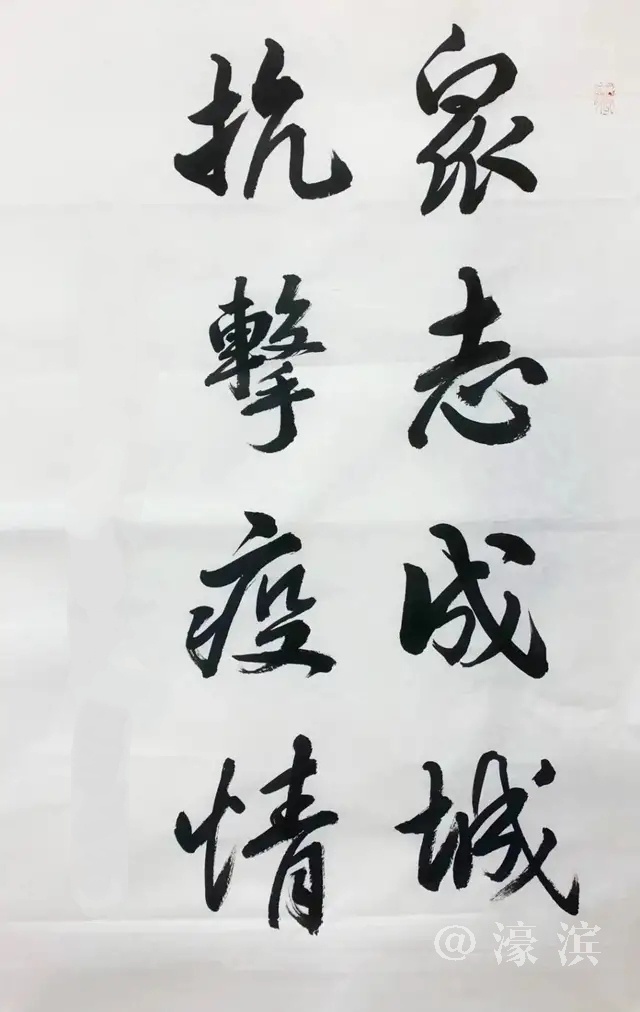 眾志成城
抗擊疫情
@濠滨